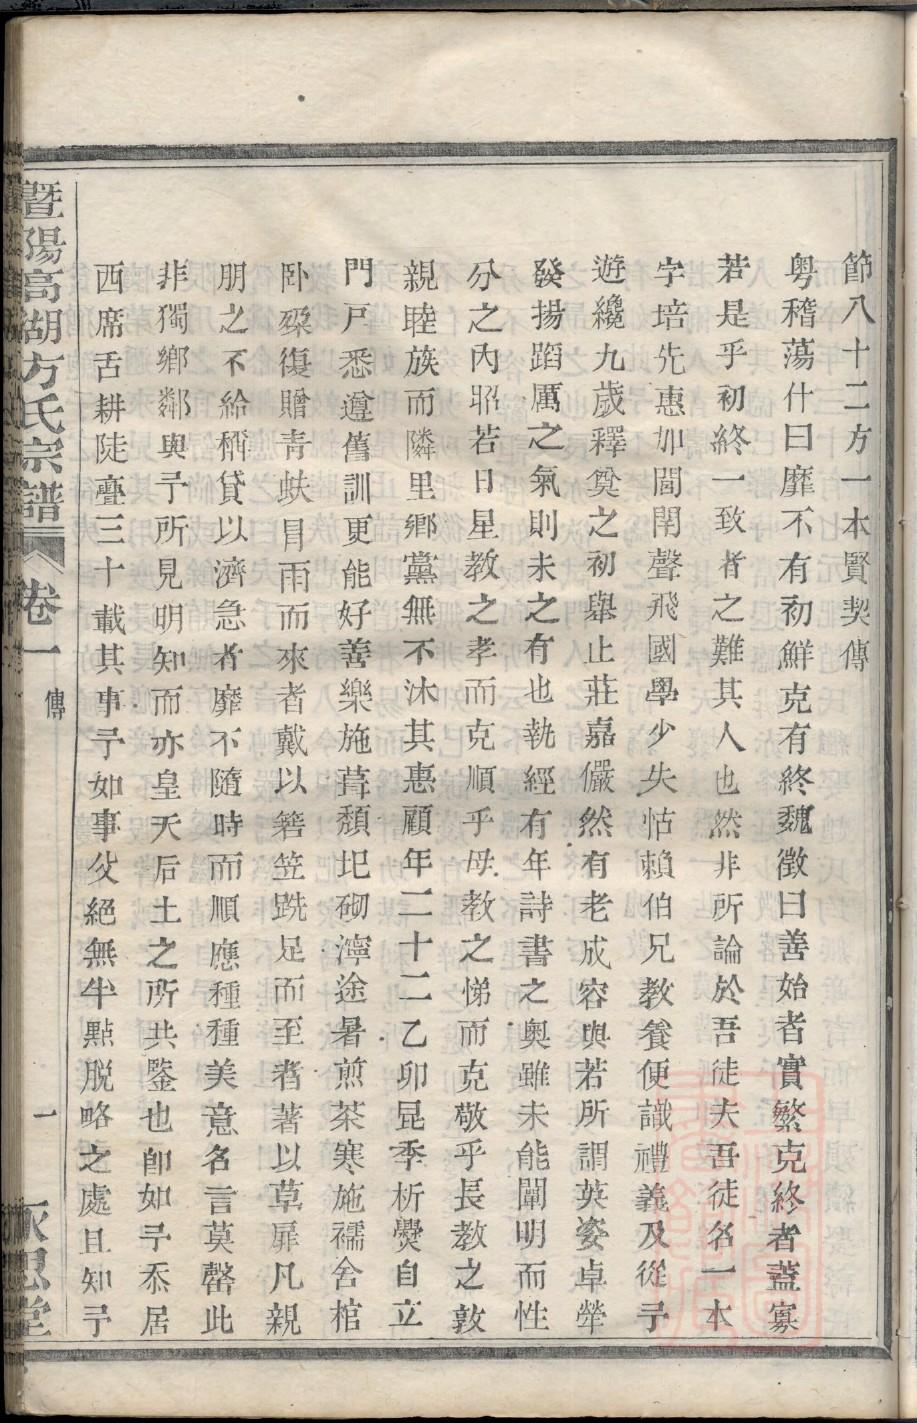 節八十二方一本賢契傳
粵稽蕩什曰靡不有初鮮克有終魏徵曰善始者實繁克終者蓋寡
若是乎初終一致者之難其人也然非所論於吾徒夫吾徒名一本
字培先惠加閭閈聲飛國學少失怙賴伯兄教養便識禮義及從予
遊纔九歲釋奠之初舉止莊嘉儼然有老成容與若所謂英姿卓犖
發揚蹈厲之氣則未之有也執經有年詩書之奧雖未能闡明而性
分之內昭若日星教之孝而克順乎母教之悌而克敬乎長教之敦
親睦族而隣里鄉黨無不沐其惠顧年二十二乙卯昆季析爨自立
門戶悉遵舊訓更能好善樂施葺頹圯砌濘途暑煎茶寒施襦舍棺
卧殮復贈青蚨冒雨而來者戴以箬笠跣足而至者著以草屝凡親
朋之不給稱貸以濟急者靡不隨時而順應種種美意名言莫罄此
非獨鄉鄰與予所見明知而亦皇天后土之所共鑒也卽如予忝居
西席舌耕陡亹三十載其事予如事父絕無半點脱略之處且知予
暨陽高湖方氏宗譜 卷一 傳 一 永思堂